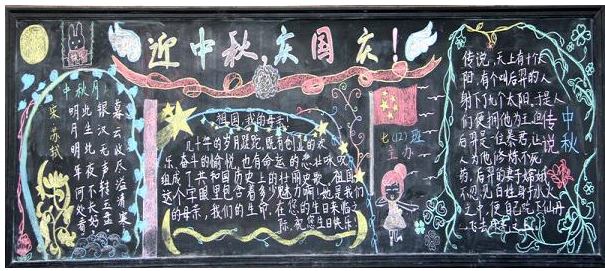 迎中秋,庆国庆!
中秋月
宋 苏轼
暮云收尽溢清寒
银汉无声转玉盘
此生此夜不长好
明月明年何处看
祖国,我的母亲
几十年的岁月蹉跎,既有创业的欢
乐,奋斗的愉悦,也有命运的悲壮咏叹
组成了共和国历史上的壮丽史歌。祖国
这个字眼里包含着多少魅力啊!她是我们
的母亲,我们的生命,在您的生日来临之
际,祝您生日快乐
七(12)班
主办
中秋传说
传说,天上有十个太
阳,有个叫后羿的人
射下了九个太阳,于是人
们便拥他为王,但
后羿是一位暴君,让
人为他修炼不死
药,后羿的妻子嫦娥
不忍见百姓身于水火
之中,便自己吃下仙丹